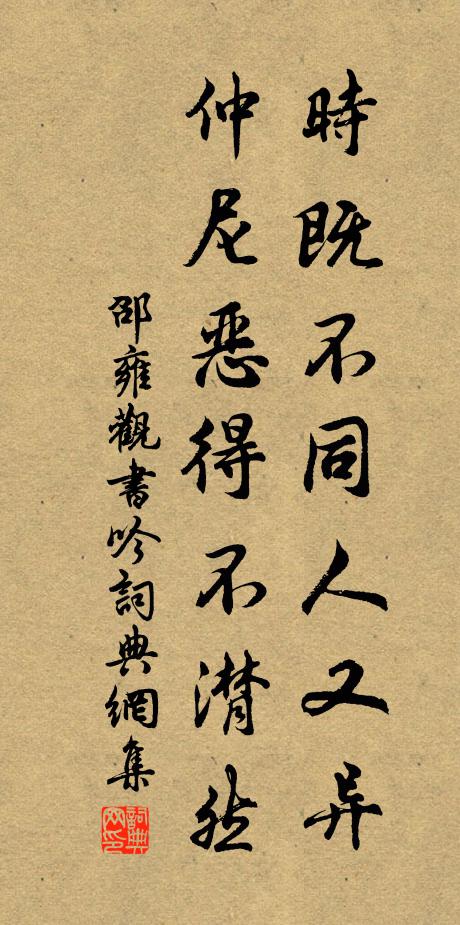 時既不同人又异
仲尼恶得不潸然
邵雍觀書吟詞典網集
詞典网印